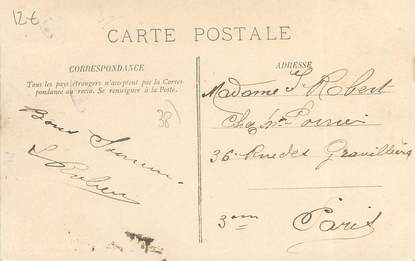 12€
CARTE POSTALE
CORRESPONDANCE
Tous les pays étrangers n'acceptent pas la Corres-
pondance au recto. Se renseigner à la Poste.
38)
ADRESSE
Madame S Robert
Chez Mr
36 Rue des Gravilliers
3em Paris
Bons